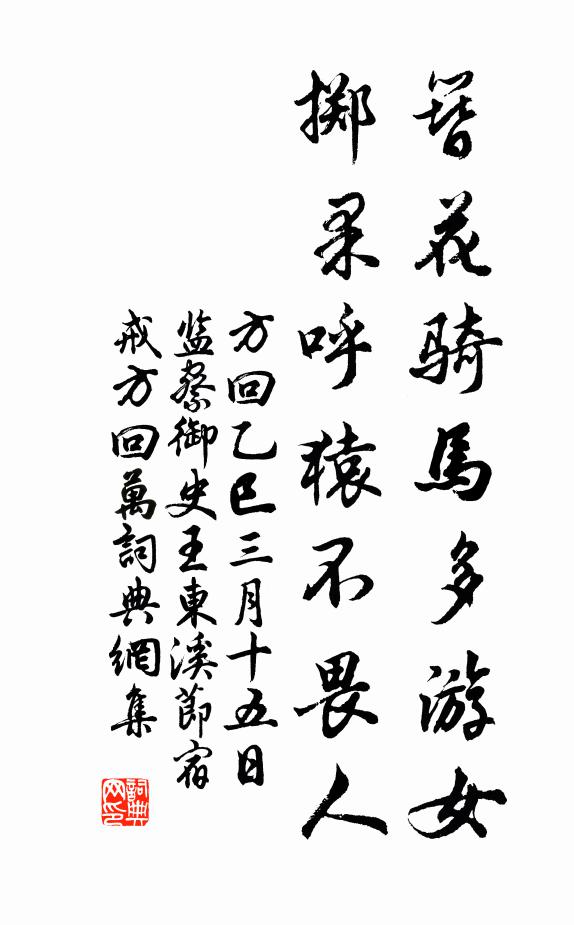 簪花骑馬多游女
掷果呼猿不畏人
方回乙巳三月十五日
监察御史王東溪節宿
戒方回萬詞典網集
詞典网印